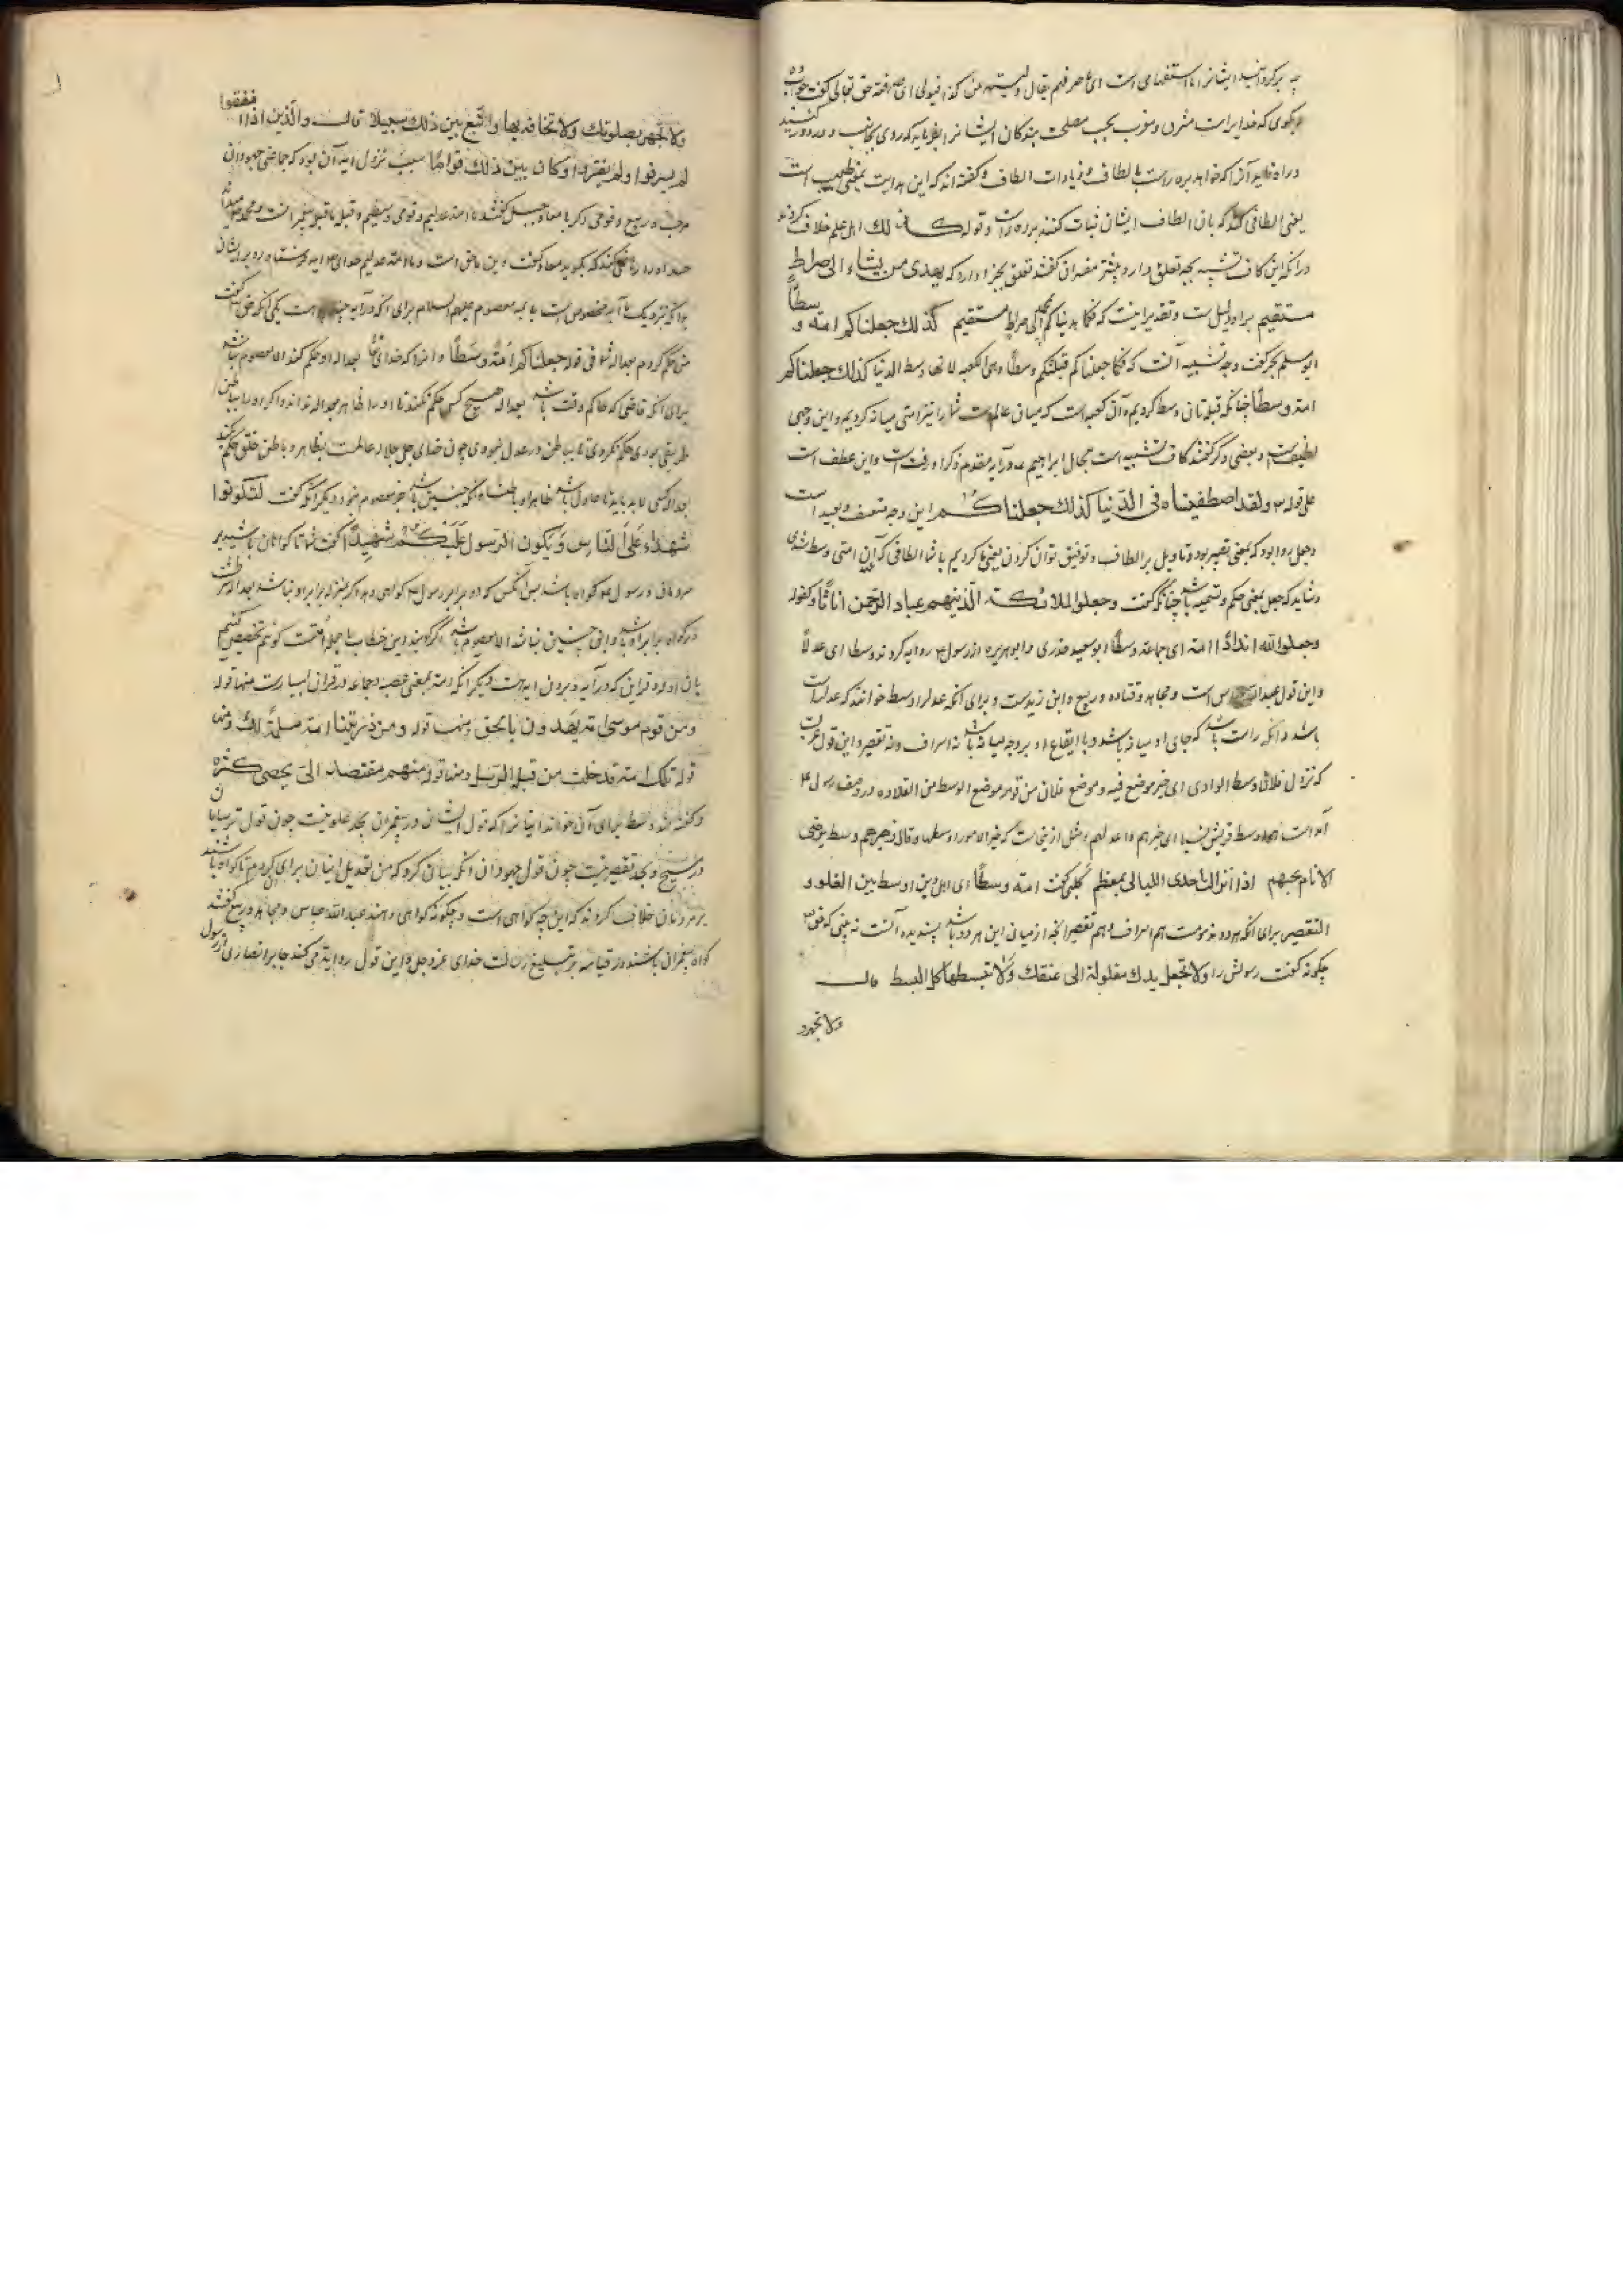 چه برگردانید ایشانرا ما استفهامی است ای حرفهم یقال ولیته من کذا فتولی ای صرفته حق تعالی گفت جواب ده
بگوی که خدایراست مشرق و مغرب بحسب مصلحت بندگان ایشانرا بفرماید که روی بجانب
و راه نماید آنرا که خواهد بره راست بالطاف و زیادات الطاف و گفته‌اند که این هدایت بمعنی
یعنی الطافی کند که بان الطاف ایشان ثبات کنند بر ره راست و قوله کذلک اهل علم خلاف کردند
در آنکه این کاف تشبیه بچه تعلق دارد بیشتر مفسران گفتند تعلق بخبر دارد که یهدی من یشاء الی صراط
مستقیم براو دلیلست و تقدیر اینست که فکما هدیناکم الی صراط مستقیم کذلک جعلناکم امة وسطا و
ابومسلم بحر گفت وجه تشبیه آنست که فکما جعلناکم قبلتکم وسطا وهی الکعبه لانها وسط الدنیا کذلک جعلناکم
امة وسطا چنانکه قبله‌تان وسط کردیم و آن کعبه است که میان عالمست شما را نیز امتی میانه کردیم و این وجهی
لطیفست و بعضی دگر گفتند کاف تشبیه است بحال ابراهیم ع در آیه مقدم ذکر او رفت است و این عطف است
علی قوله ولقد اصطفیناه فی الدنیا کذلک جعلناکم این وجه متعسف و بعید است
و جعل روا بود که بمعنی تصییر بود و تاویل بر الطاف و توفیق توان کردن یعنی ما کردیم با شما الطافی که بان امتی وسط شدی
و شاید که جعل بمعنی حکم و تسمیه باشد چنانکه گفت وجعلوا الملائکة الذینهم عباد الرحمن اناثا و کقوله
وجعلوا لله اندادا امة ای جماعة وسطا ابوسعید خدری و ابوهریره از رسول ع روایه کردند وسطا ای عدلا
و این قول عبدالله عباس است و مجاهد و قتاده و ربیع و ابن زید است و برای آنکه عدل را وسط خواندند که عدل راست
باشد و آنکه راست باشد که جای او میانه باشد و با ایقاع او بر وجه میانه باشد نه اسراف و نه تقصیر و این قول عرب
که نزل فلان وسط الوادی ای خیر موضع فیه و موضع فلان من قومه موضع الوسط من القلاده و در وصف رسول ع
آمد است وسط قریش نسبا ای خیرهم و اعدلهم و مثل ازینجاست که خیر الامور اوسطها و قال زهیر هم وسط یرضی
الانام بحبهم اذا نزلت احدی اللیالی بمعظم کلبی گفت امة وسطا ای اهل دین اوسط بین الغلو و
التقصیر برای آنکه هر دو مذمومست هم اسراف و هم تقصیر آنچه از میان این هر دو باشد پسندیده آنست نه بینی که حق تع
چگونه گفت رسولش را ولا تجعل یدک مغلولة الی عنقک ولا تبسطها کل البسط قال
ولا تجهر
ولا تجهر بصلوتک ولا تخافت بها وابتغ بین ذلک سبیلا قالـ والذین اذا انفقوا
لم یسرفوا ولم یقتروا وکان بین ذلک قواما سبب نزول آیه آن بود که جماعتی جهودان
جبل گفتند ما امة عدلیم و قومی وسطیم و قبله ما قبله پیغمبرانست و محمد میداند
حسد او را رها نمی‌کند که بگوید معاذ گفت دین ما حق است و ما امة عدلیم خدای ع آیه فرستاد و رد بر ایشان
و آیه نزدیک ما مخصوص است بایمه معصوم علیهم السلام برای آنکه در آیه است یکی آنکه حق تعالی گفت
من حکم کردم بعداله شما فی قوله جعلناکم امة وسطا و آنرا که خدای تعالی بعداله او حکم کند الا معصوم نباشد
برای آنکه قاضی که حاکم وقت باشد بعداله هیچ کس حکم نکند تا او را ظاهر عداله نداند و اگر او را بباطن
طریقی بودی حکم نکردی تا بباطن و عدول نبودی چون خدای جل جلاله عالمست بظاهر و باطن خلق حکم نکند
بعداله کسی لابد باید تا عدول باشد ظاهرا و باطنا و آنکه چنین باشد جز معصوم نبود و دیگر آنکه گفت لتکونوا
شهداء علی الناس ویکون الرسول علیکم شهیدا گفت شما تا گواهان باشید بر
مردمان و رسول بر شما گواه باشد پس آنکس که او برابر رسول ع گواهی دهد اگر بمنزله برابر او نباشد بعداله
در گواه برابر او باشد و این چنین نباشد الا معصوم باشد اگر گویند این خطاب با جمله امتست گوئیم تخصیص کنیم
بان ادله و قراین که در آیه و برون آیه است دیگر آنکه امة بمعنی عصبه و جماعة در قران بسیارست منها قوله
ومن قوم موسی امة یهدون بالحق ومنها قوله ومن ذریتنا امة مسلمة لک ومنها
قوله تلک امة قد خلت من قبلها الرسل ومنها قوله منهم امة مقتصدة الی ما لا یحصی کثرة
و گفته‌اند وسط برای آن خواند ایشانرا که قول ایشان در پیغمبران بحد غلو نیست چون قول ترسایان
در مسیح و بحد تقصیر نیست چون قول جهودان آنکه بیان کرد که من تعدیل اینان برای آن کردم تا گواه باشند
بر مردمان خلاف کردند که این چه گواهی است و چگونه گواهی دهند عبدالله عباس و مجاهد و ربیع گفتند
گواه پیغمبران باشند در قیامه بر تبلیغ رسالت خدای عز و جل و این قول روایة می‌کند جابر انصاری از رسول